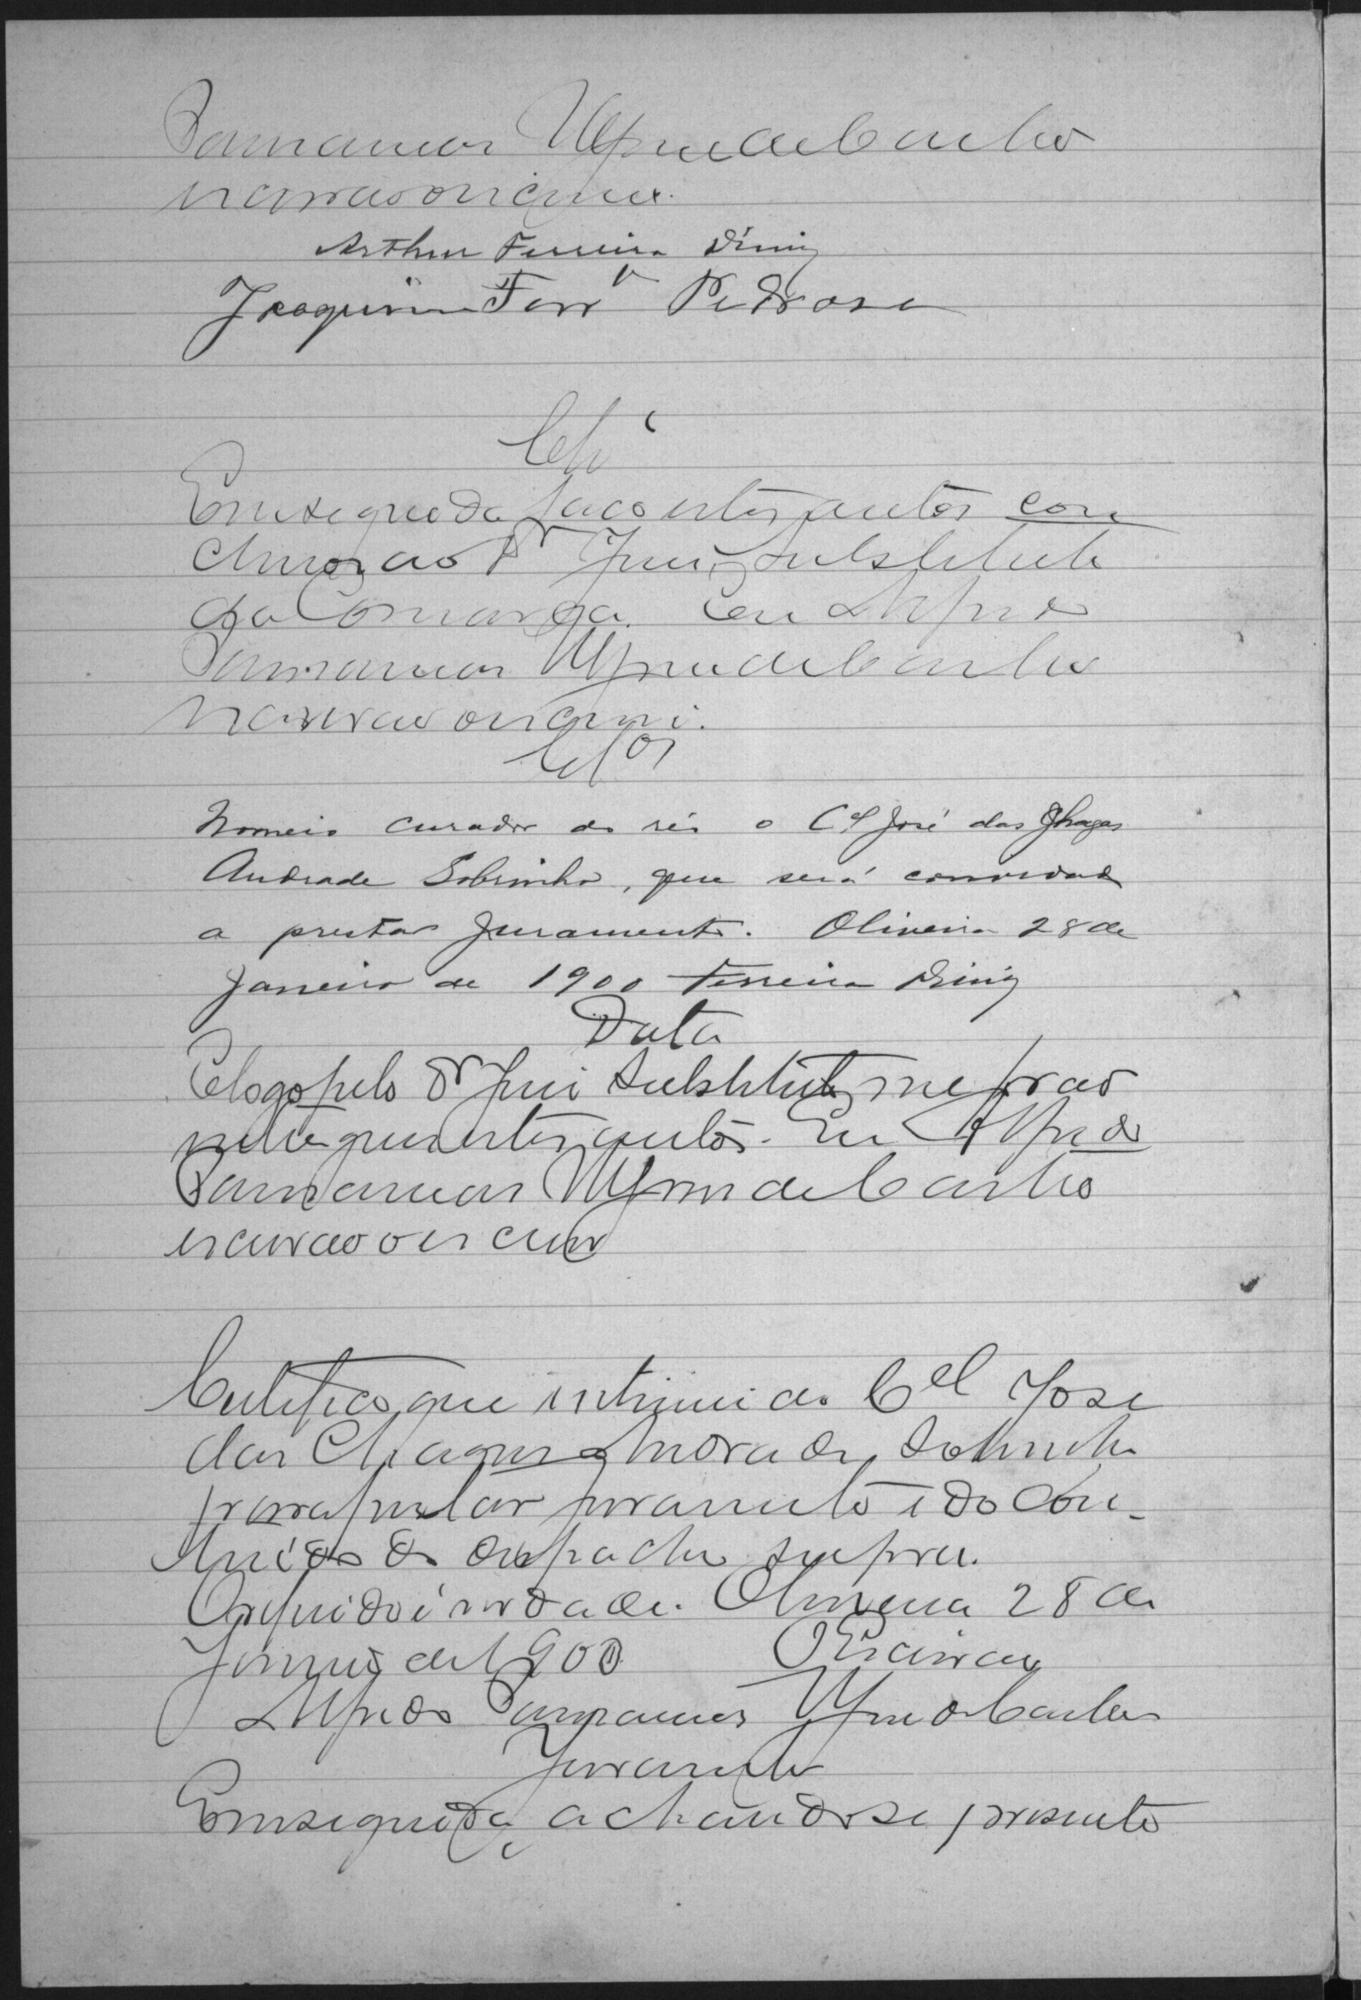 Paranaias de Castro
escrivão o escrevi.
Arthur Ferreira Diniz
Joaquim Ferrª Pedrosa
Clsº
Em seguida faço estes autos con
clusos ao Dr Juiz Substituto
da Comarca. Eu Alfredo
de Castro
escrivão o escrevi.
Clsos
Nomeio curador ao réo o Cel José das Chagas
Andrade Sobrinho, que será convidado
a prestar juramento. Oliveira 28 de
Janeiro de 1900 Ferreira Diniz
Data
E logo pelo Dr Juiz Substituto me forão
entregues estes autos. Eu Alfredo
de Castro
escrivão o escrevi
Certifico que intimei ao Cel José
das Chagas Andrade Sobrinho
para prestar juramento e do con-
theúdo do despacho supra.
O referido é verdade. Oliveira 28 de
Janeiro de 1900 O Escrivão
Alfredo de Castro
Juramento
Em seguida, achando se presente